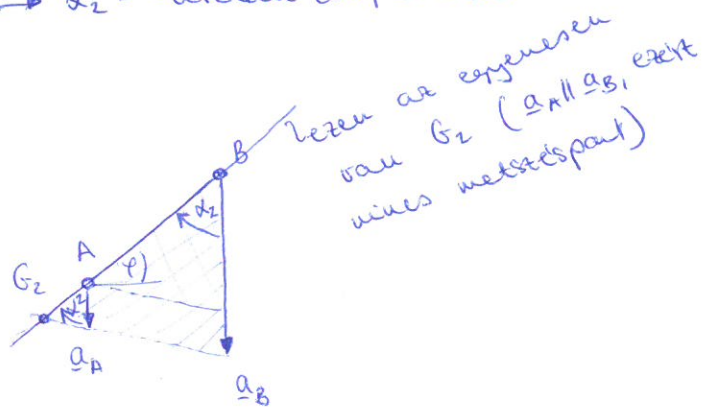 α₂
ezen az egyenesen
van G₂ (a_A ∥ a_B, ezért
nincs metszéspont)
B
α₂
A
φ
G₂
α₂
a_A
a_B